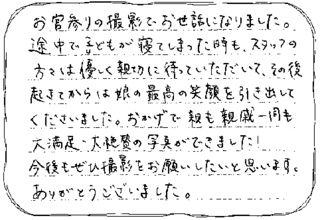 お宮参りの撮影でお世話になりました。
途中で子どもが寝てしまった時も、スタッフの
方々は優しく親切に待っていただいて、その後
起きてからは娘の最高の笑顔を引き出して
くださいました。おかげで親も親戚一同も
大満足・大絶賛の写真ができました!
今後もぜひ撮影をお願いしたいと思います。
ありがとうございました。